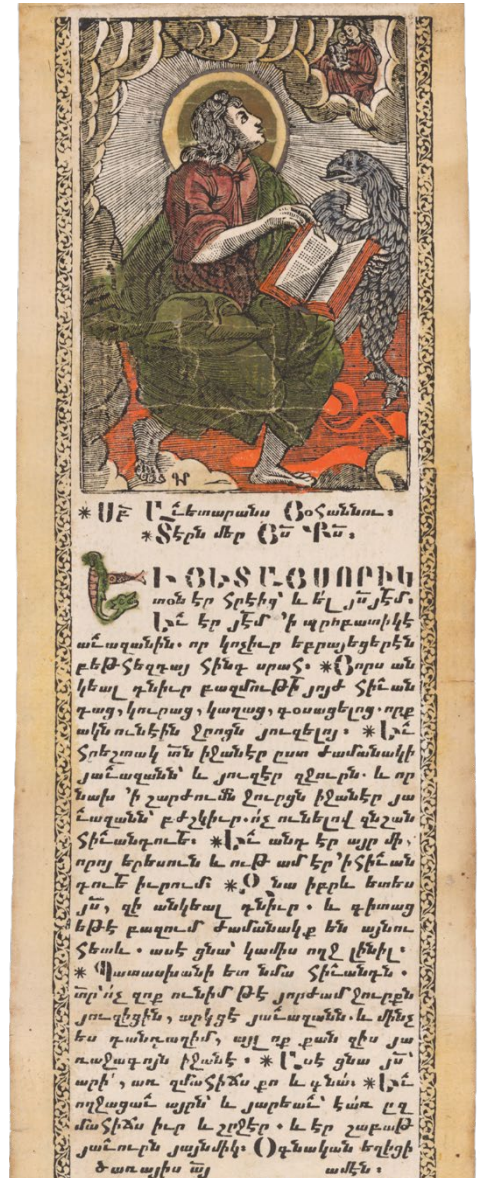 * ՍԲ՟ Աւետարանս Յօհաննու։
*Տէրն մեր Յս՟ Քս՟։
ԵՒ ՅԵՏ ԱՅՍՈՐԻԿ
տօն էր հրէից՝ և ել յս՟ յէմ՟.
Եւ էր յէմ՟ ՚ի պրոբատիկէ
աւազանին. որ կոչիւր եբրայեցերէն
բեթհեզդայ հինգ սրահ. *Յորս ան
կեալ դնիւր բազմութի՟ յոյժ հիւան
դաց, կուրաց, կաղաց, գօսացելոց. որք
ակն ունէին ջրոցն յուզելոյ. *Եւ
հրեշտակ տն՟ իջանէր ըստ ժամանակի
յաւազանն՝ և յուզէր զջուրն. և որ
նախ ՚ի շարժումն ջուրցն իջանէր յա
ւազանն՝ բժշկիւր. ո՛չ ունելով զնշան
հիւանդուե՟. *Եւ անդ էր այր մի,
որոյ երեսուն և ութ ամ էր ՚ի հիւան
դուե՟ իւրում։ *Զ նա իբրև ետես
յս՟, զի անկեալ դնիւր. և գիտաց
եթէ բազում ժամանակք են այնու
հետև. ասէ ցնա՝ կամիս ողջ լինիլ։
* Պատասխանի ետ նմա հիւանդն.
տր՟՝ ո՛չ զոք ունիմ թէ յորժամ ջուրքն
յուզիցին, արկցէ յաւազանն. և մինչ
ես դանդաղիմ, այլ ոք քան զիս յա
ռաջագոյն իջանէ. *Ասէ ցնա յս՟՝
արի՛, առ զմահիճս քո և գնա՛։ *Եւ
ողջացաւ այրն՝ և յարեաւ՝ էառ ըզ
մահիճս իւր և շրջէր. և էր շաբաթ
յաւուրն յայնմիկ։ Օգնական եղիցի
ծառայիս այ՟ ամէն։